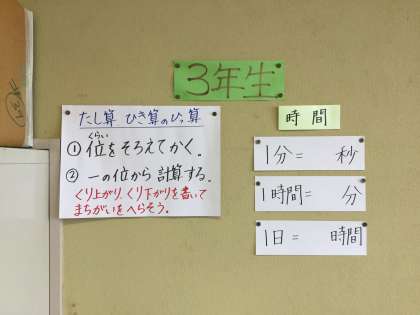 3年生
たし算 ひき算のひっ算
くらい
① 位をそろえてかく。
② 一の位から計算する。
くり上がり、くり下がりを書いて
まちがいをへらそう。
時間
1分= 秒
1時間= 分
1日= 時間